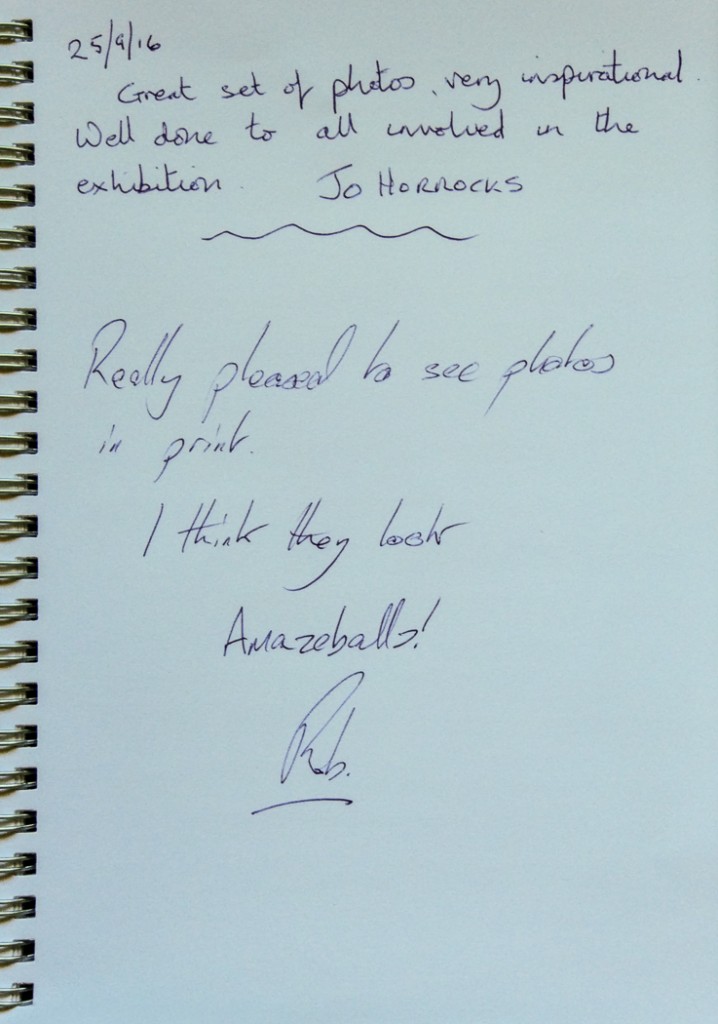 25/9/16
Great set of photos, very inspirational.
Well done to all involved in the
exhibition. Jo HORROCKS
Really pleased to see photos
in print.
I think they look
Amazeballs!
Rob.